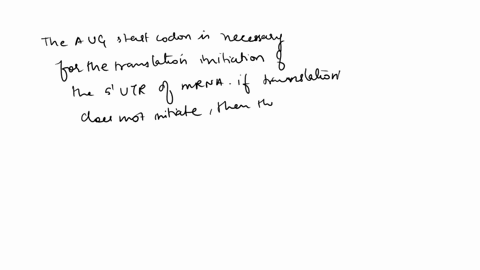 The AUG start codon is necessary
for the translation initiation of
the 5' UTR of mRNA. if translation
does not initiate, then th